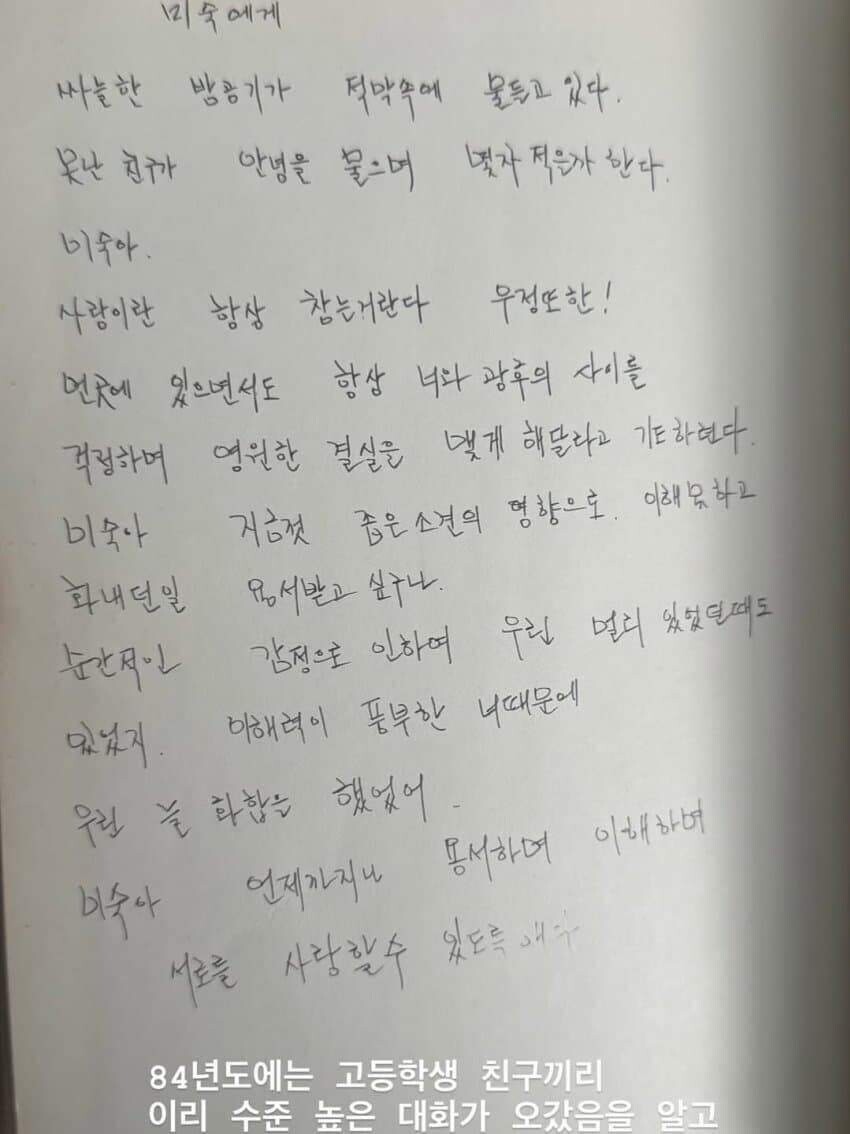 미숙에게
싸늘한 밤공기가 적막속에 물들고 있다.
못난 친구가 안녕을 물으며 몇자 적은가 한다.
미숙아.
사랑이란 항상 참는거란다 우정또한!
먼곳에 있으면서도 항상 너와 광후의 사이를
걱정하며 영원한 결실을 맺게 해달라고 기도하련다.
미숙아 지금껏 좁은소견의 영향으로. 이해못하고
화내던일 용서받고 싶구나.
순간적인 감정으로 인하여 우린 멀리 있었던때도
있었지. 이해력이 풍부한 너때문에
우린 늘 화합을 했었어.
미숙아 언제까지나 용서하며 이해하며
서로를 사랑할수 있도록
84년도에는 고등학생 친구끼리
이리 수준 높은 대화가 오갔음을 알고